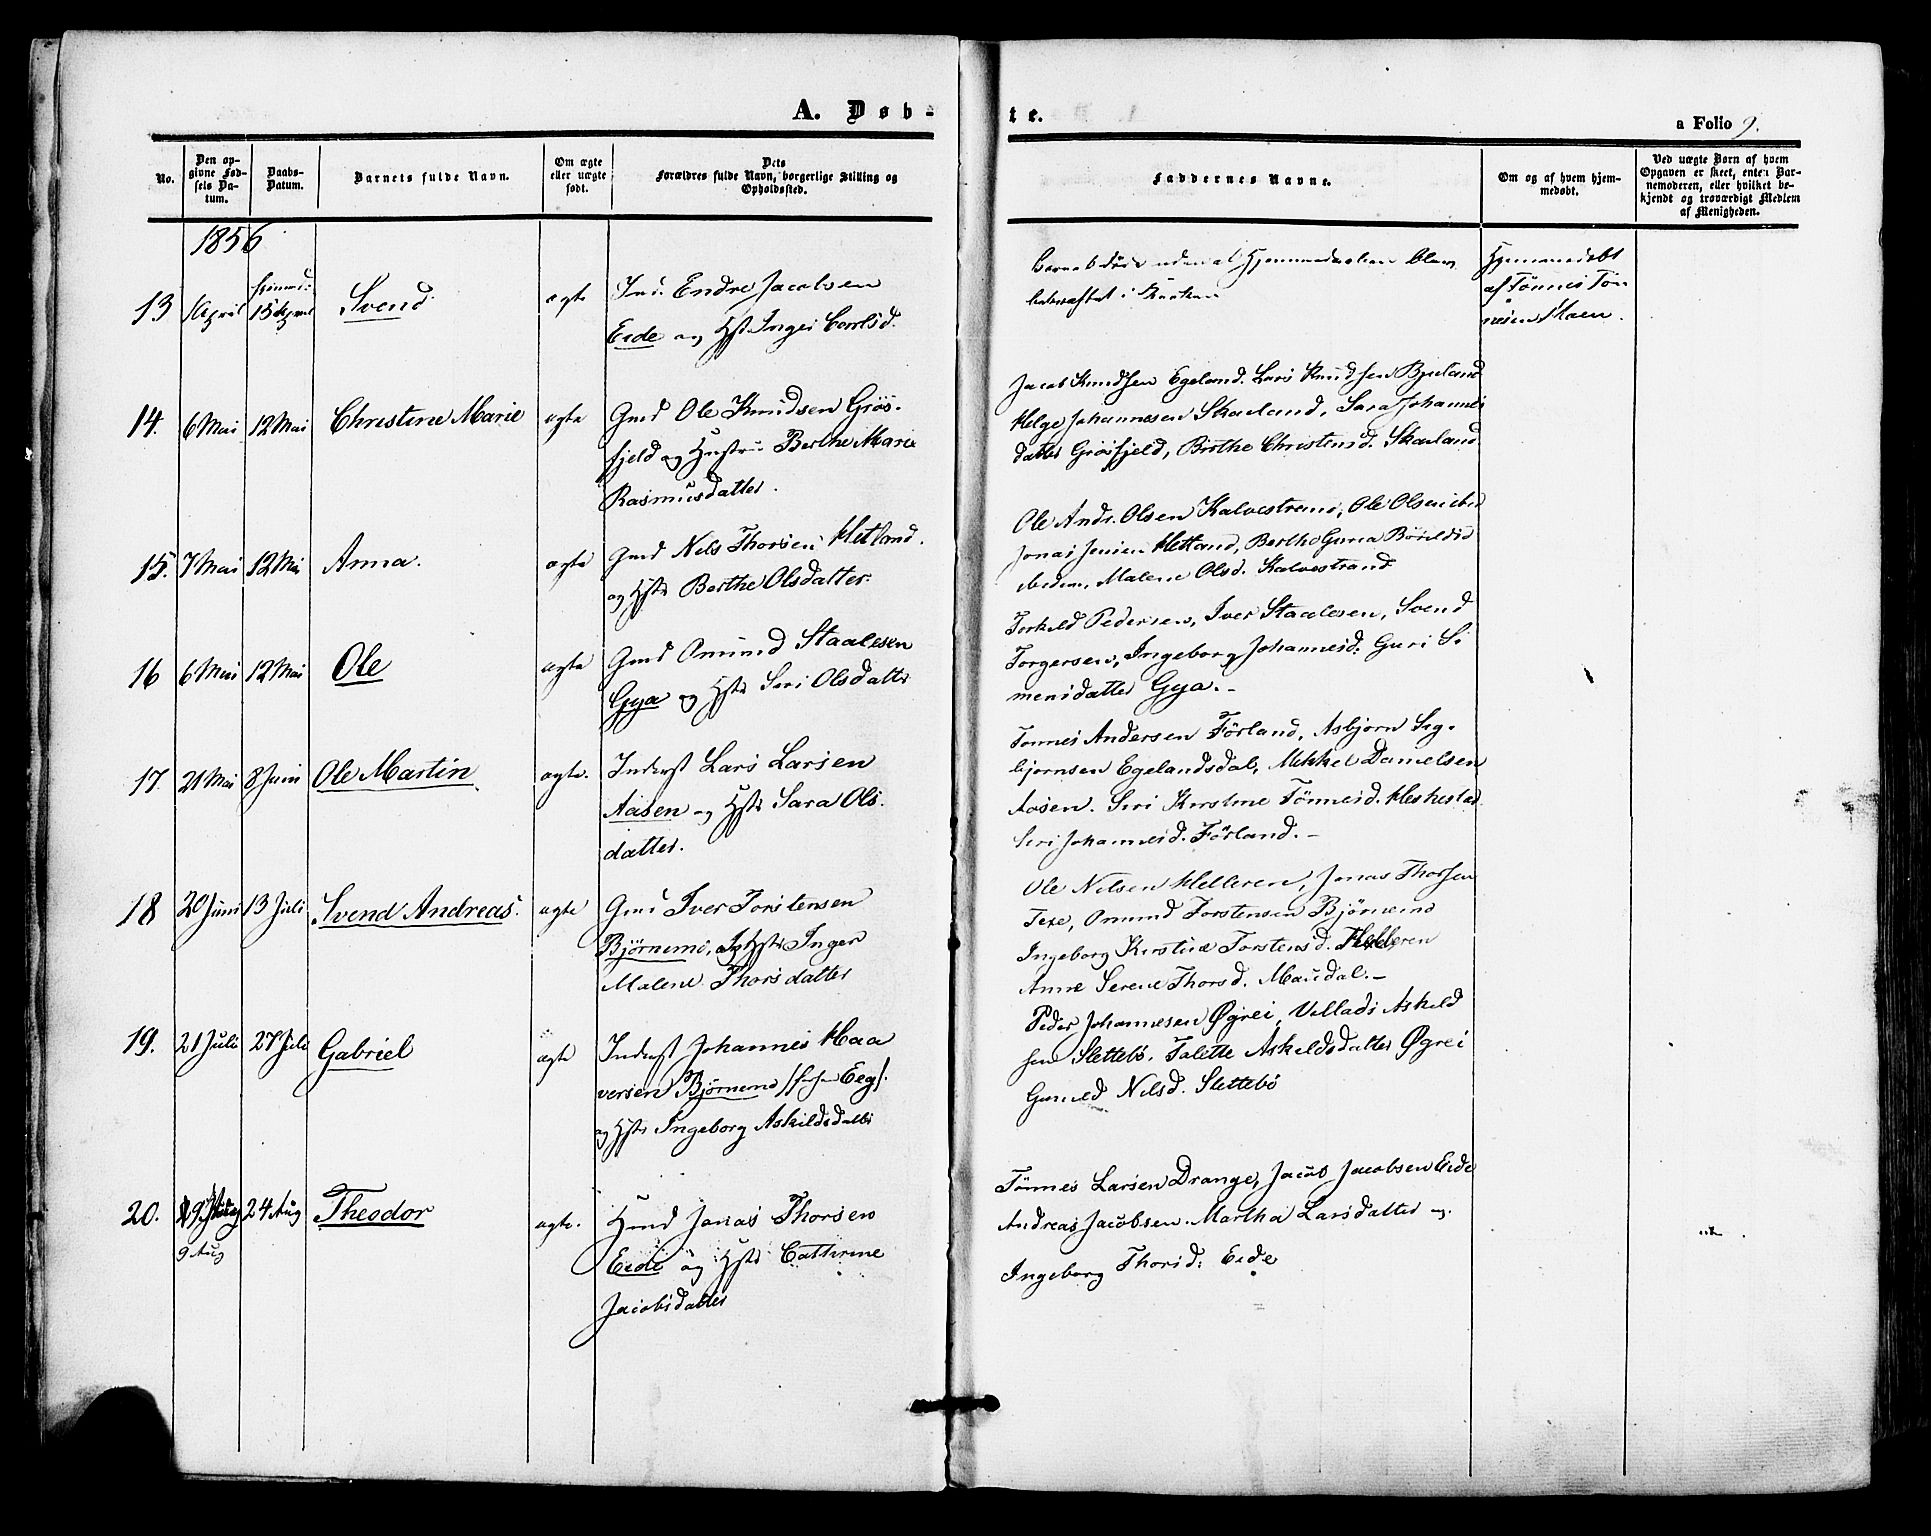 A. Døb-
te.
a Folio 9.
No.
Den op-
givne Fød-
sels Da-
tum.
Daabs-
Datum.
Barnets fulde Navn.
Om ægte
eller uægte
født.
Dets
Forældres fulde Navn, borgerlige Stilling og
Opholdssted.
Faddernes Navne.
Om og af hvem hjem-
medøbt.
Ved uægte Børn af hvem
Opgaven er skeet, enten Bar-
nemoderen, eller hvilket be-
kjendt og troværdigt Medlem
af Menigheden.
1856
13
April
15 April
Svend
ægte
Ind. Endre Jacobsen
Eide og Hst. Inger Carlsd.
i Kirken
Hjemmedøbt
af Tönnes Tön
nesen Moen.
14.
6 Mai
12 Mai
Christine Marie
ægte
Gmd Ole Knudsen Grös-
fjeld og Hustru Berthe Marie
Rasmusdatter.
Jacob Knudsen Egeland. Lars Knudsen Bjuland
Helge Johannesen Skarland, Sara Johannes
datter Grösfjeld, Birthe Christensd. Skarland
15.
7 Mai
12 Mai
Anna.
ægte
Gmd Nels Thorsen Hetland.
og Hstr Berthe Olsdatter.
Ole Ands. Olsen Kalvestrand, Ole Olsen ibid
Jonas Jensen Hetland, Berthe Guna Börildsd
ibidem, Malene Olsd. Kalvestrand
16
6 Mai
12 Mai
Ole
ægte
Gmd Omund Staalesen
Gya og Hstr Siri Olsdatter
Torkild Pedersen, Iver Staalesen, Svend
Torgersen, Ingeborg Johannesd. Guri Si
mensdatter Gya.-
17.
21 Mai
8 Juni
Ole Martin
ægte.
Inderst Lars Larsen
Aasen og Hstr Sara Ols.
datter.
Tonnes Andersen Förland, Asbjorn Sig-
bjornsen Egelandsdal, Mikkel Danielsen
Aasen. Siri Kirstine Tönnesd. Heskestad
Siri Johannesd. Förland.-
18
20 Juni
13 Juli
Svend Andreas.
ægte
Gmd Iver Torstensen
Björnemo, og Hstr Inger
Malene Thorsdatter
Ole Nilsen Helleren, Jonas Thorsen
Texe, Omund Torstensen Björnemo
Ingeborg Kirstine Torstensd. Helleren
Anne Serene Thorsd. Maudal.-
19.
21 Juli
27 Juli
Gabriel
ægte
Inderst Johannes Haa
versen Björnemo Eeg
og Hstr Ingeborg Askildsdatter
Peder Johannesen Øgrei, Villads Askild
sen Slettebö. Talette Askildsdatter Øgrei
Gunild Nilsd. Slettebö
20.
9 Aug
24 Aug
Theodor
ægte.
Hmd Jonas Thorsen
Eide og Hstr Cathrine
Jacobsdatter
Tönnes Larsen Drange, Jacob Jacobsen Eide
Andreas Jacobsen. Martha Larsdatter og
Ingeborg Thorsd. Eide